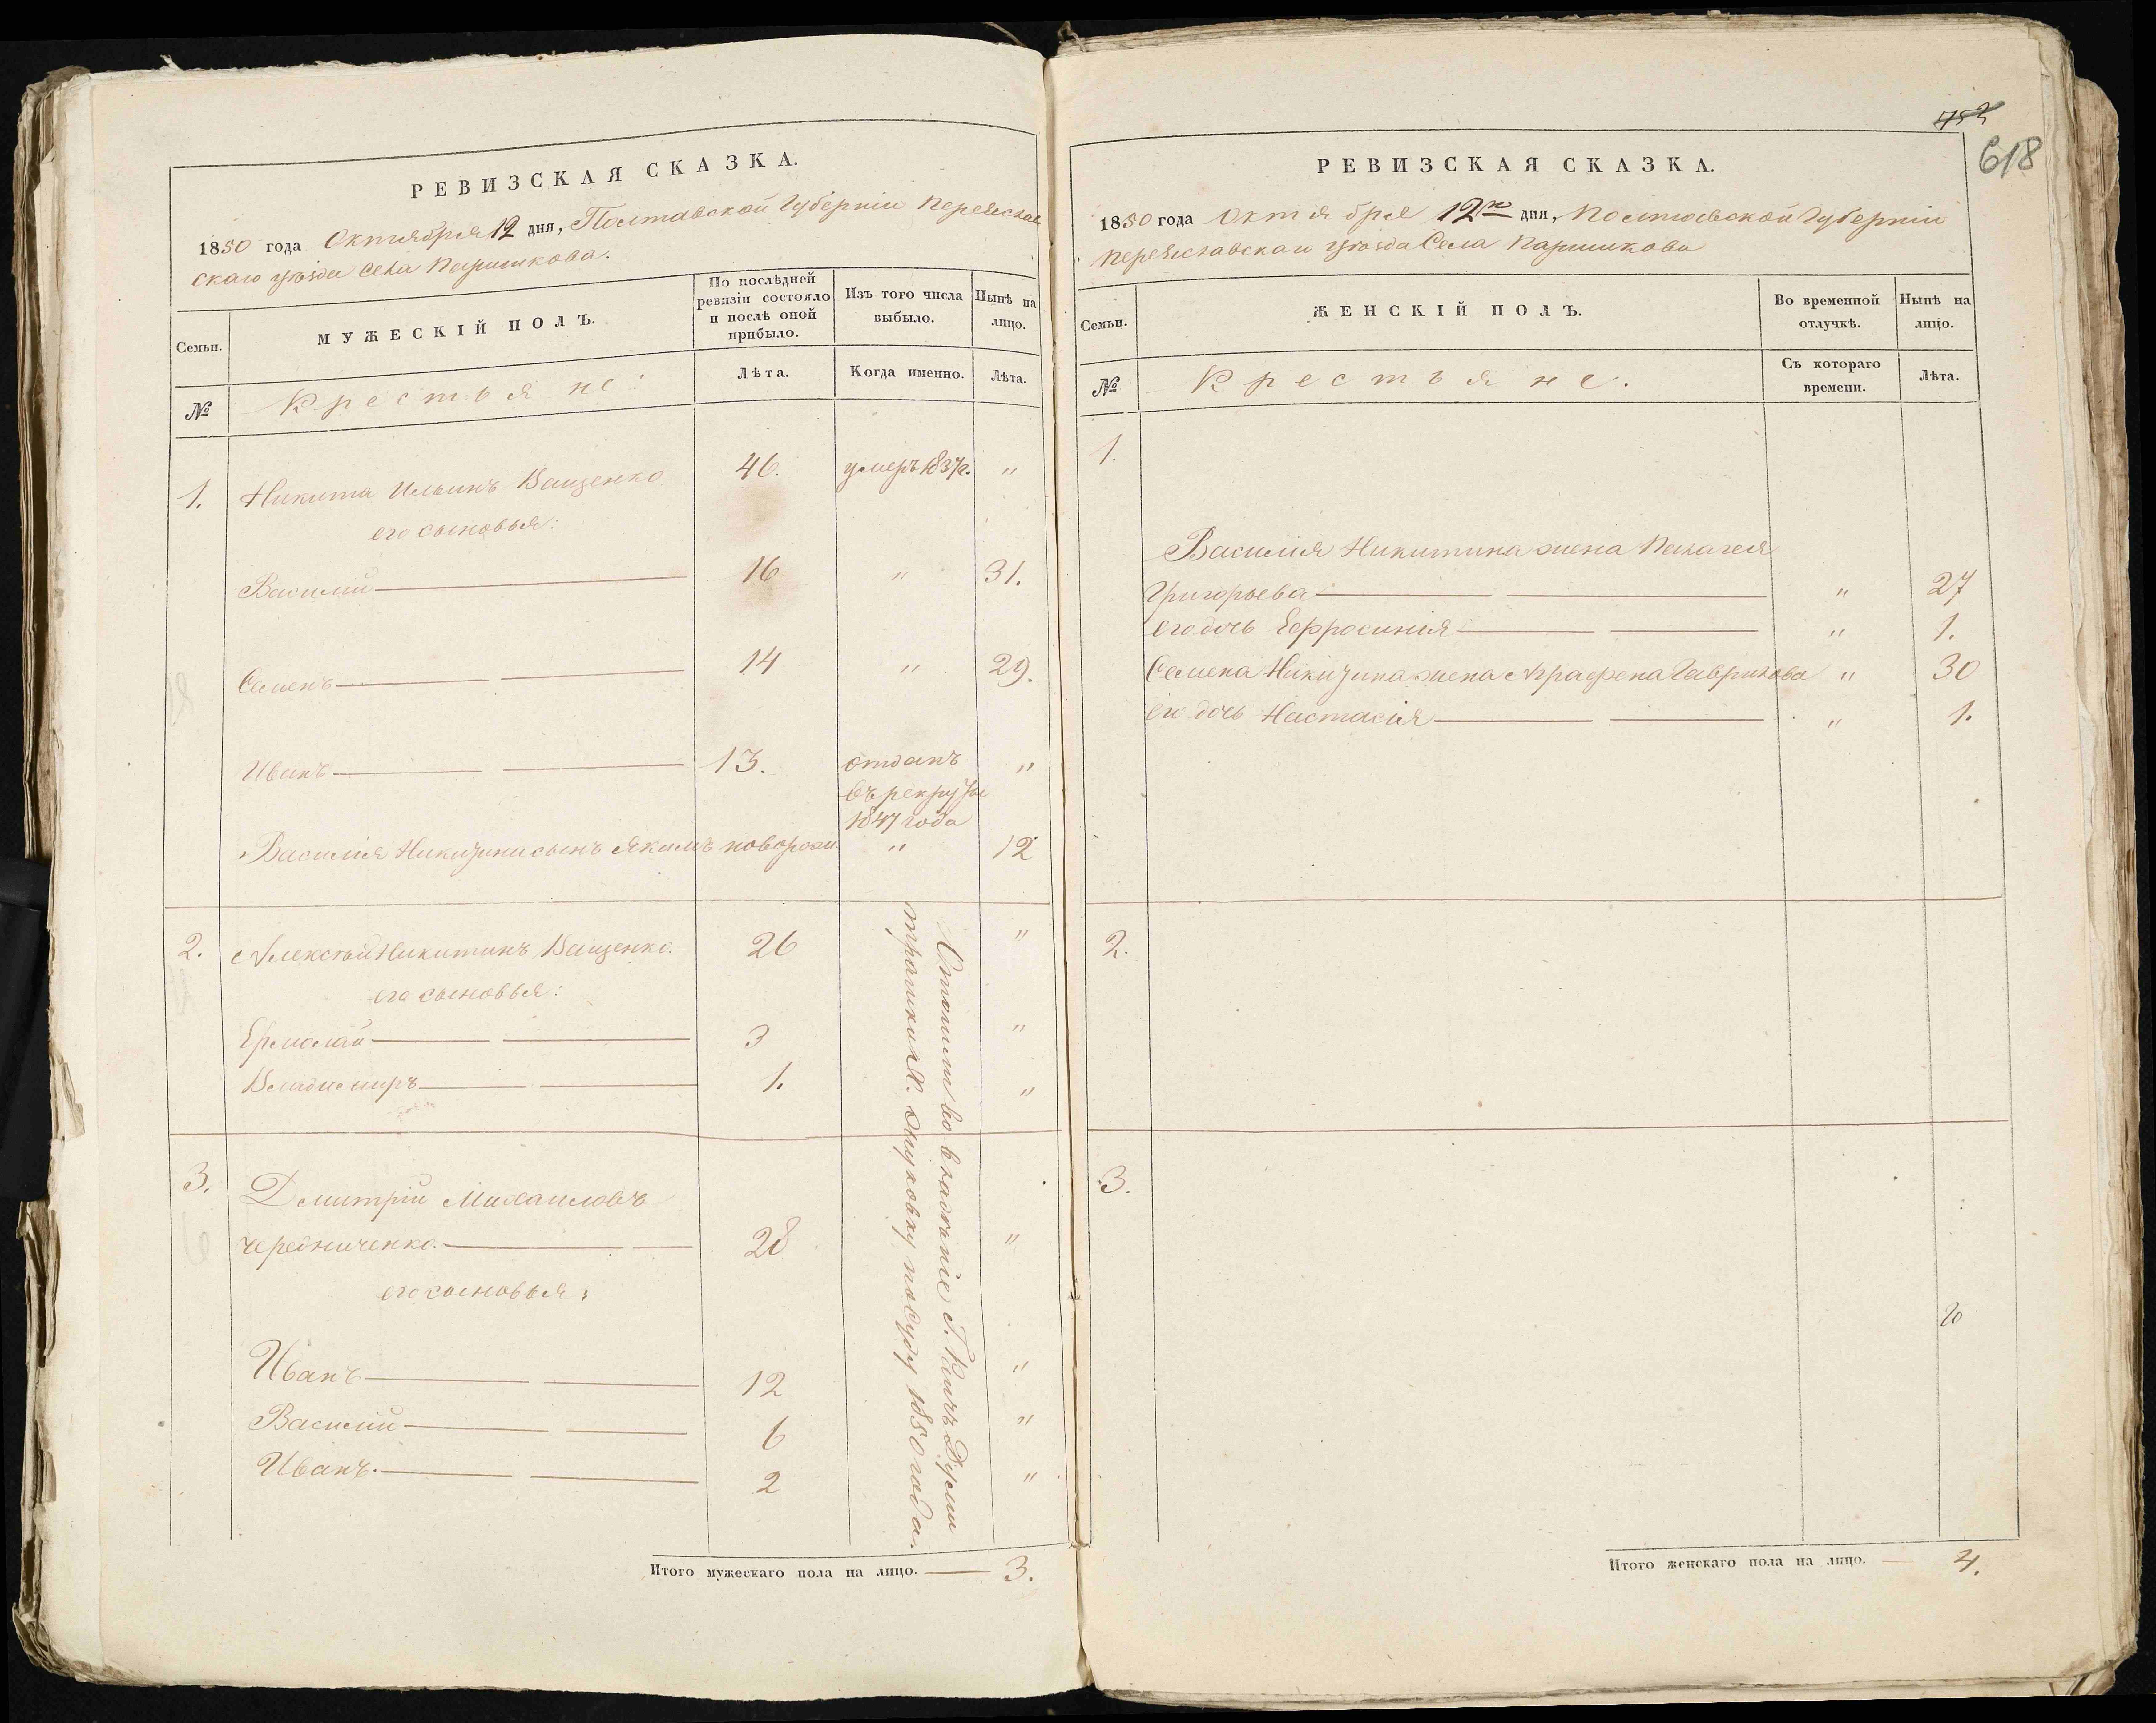 РЕВИЗСКАЯ СКАЗКА.
1850 года Октября 12 дня, Полтавской Губерніи Переяслав
скаго уѣзда Села Паришкова.
Семьи.
МУЖЕСКІЙ ПОЛЪ.
По послѣдней
ревизіи состояло
и послѣ оной
прибыло.
Изъ того числа
выбыло.
Нынѣ на
лицо.
№
Крестьяне:
Лѣта.
Когда именно.
Лѣта.
1. Никита Ильинъ Ващенко 46. умеръ 1837г. "
его сыновья:
Василий 16 " 31.
Семенъ 14 " 29.
Иванъ 13. отданъ "
въ рекруты
1847 года
Василія Никитина сынъ Якимъ новорож " 12
2. Алексѣй Никитинъ Ващенко. 26 "
его сыновья:
Ермолай 3 "
Владимиръ 1. "
3. Дмитрій Михаиловъ
Чередниченко. 28 "
его сыновья:
Иванъ 12 "
Василій 6 "
Иванъ. 2 "
во владѣніе Г.
1850 года.
Итого мужескаго пола на лицо. — 3.
752
618
РЕВИЗСКАЯ СКАЗКА.
1850 года Октября 12го дня, Полтавской Губерніи
Переяславскаго уѣзда Села Паришкова
Семьи.
ЖЕНСКІЙ ПОЛЪ.
Во временной
отлучкѣ.
Нынѣ на
лицо.
№
Крестьяне.
Съ котораго
времени.
Лѣта.
1.
Василія Никитина жена Пелагея
Григорьева " 27
его дочь Ефросинія " 1.
Семена Никитина жена Аграфена Гаврилова " 30
его дочь Настасія " 1.
2.
3.
Итого женскаго пола на лицо. — 4.